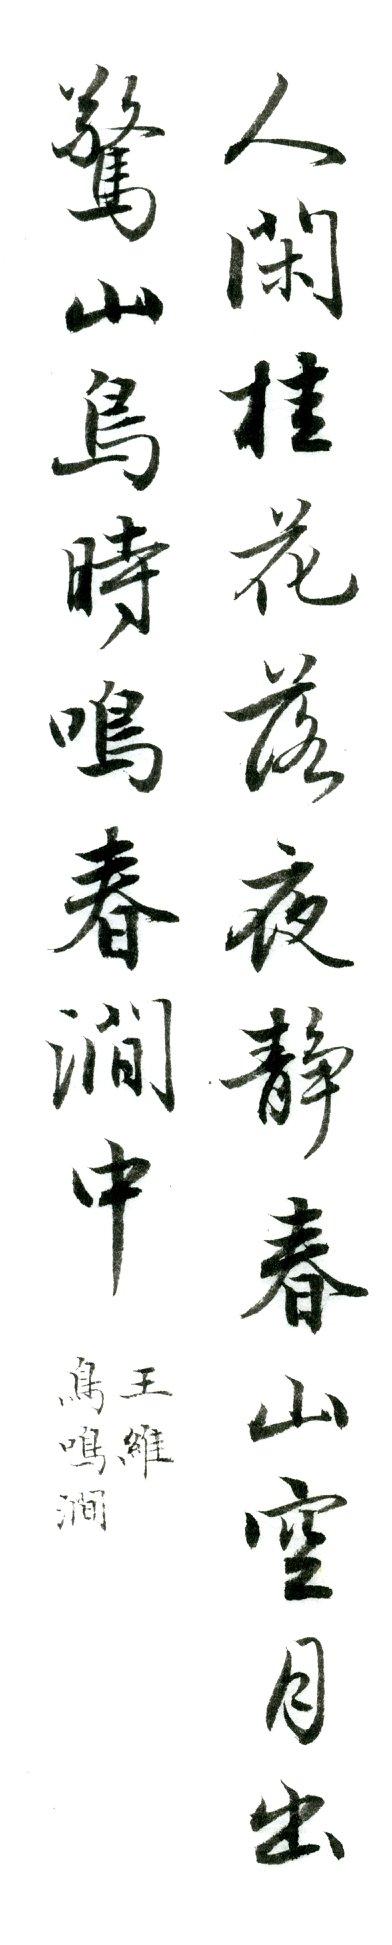 人閑桂花落夜静春山空月出
驚山鳥時鳴春澗中
王維
鳥鳴澗